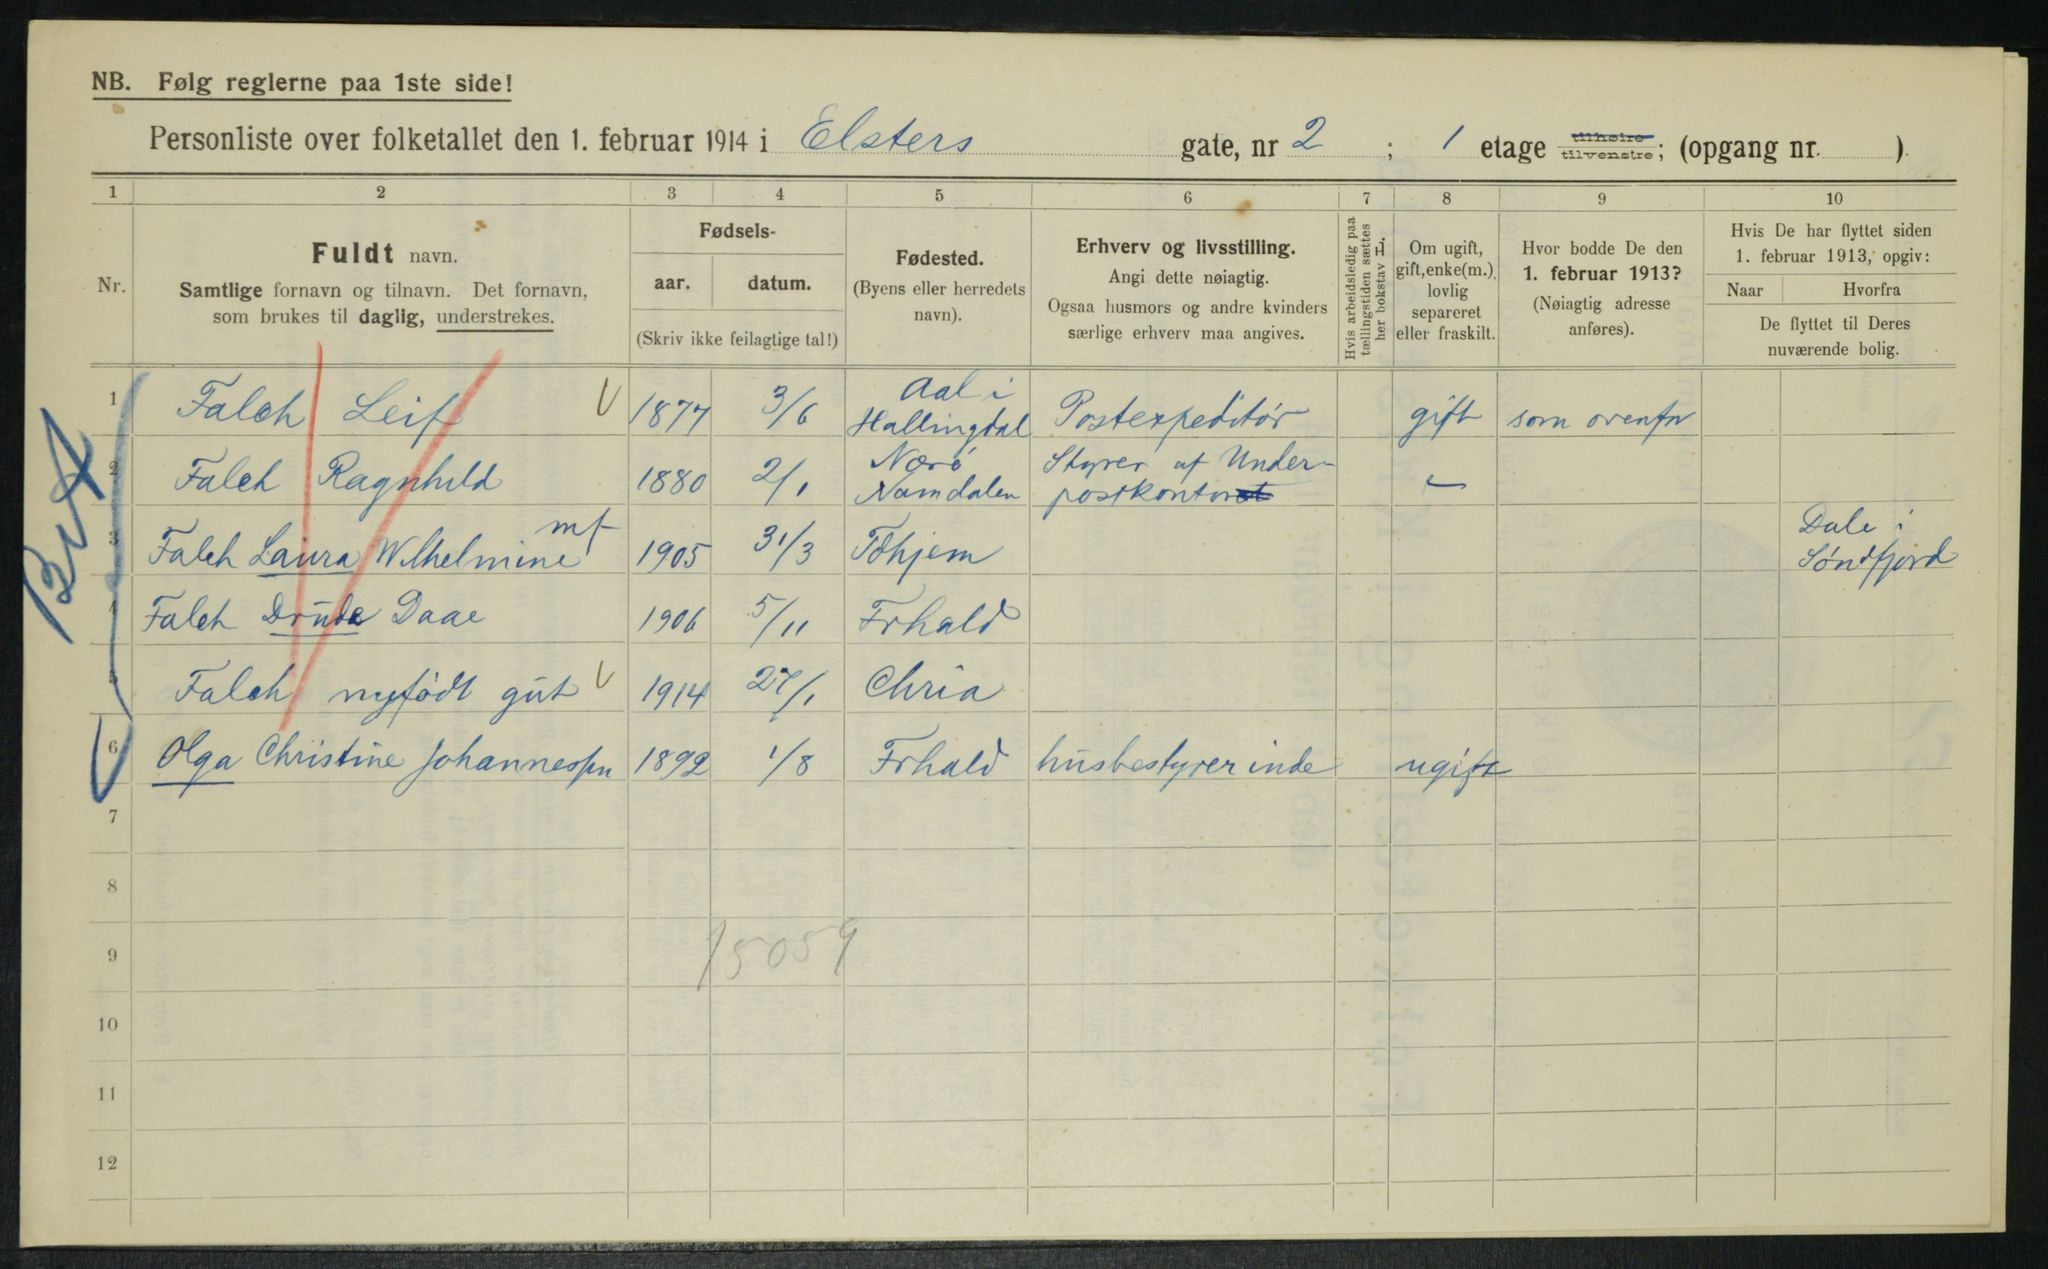 NB. Følg reglerne paa 1ste side!
Personliste over folketallet den 1. februar 1914 i Elsters gate, nr 2 ; 1 etage tilhøire tilvenstre; (opgang nr. ).
1 2 3 4 5 6 7 8 9 10
Nr.
Fuldt navn.
Samtlige fornavn og tilnavn. Det fornavn,
som brukes til daglig, understrekes.
Fødsels-
aar. datum.
(Skriv ikke feilagtige tal!)
Fødested.
(Byens eller herredets
navn).
Erhverv og livsstilling.
Angi dette nøiagtig.
Ogsaa husmors og andre kvinders
særlige erhverv maa angives.
Hvis arbeidsledig paa
tællingstiden sættes
her bokstav L.
Om ugift,
gift, enke(m.),
lovlig
separeret
eller fraskilt.
Hvor bodde De den
1. februar 1913?
(Nøiagtig adresse
anføres).
Hvis De har flyttet siden
1. februar 1913, opgiv:
Naar Hvorfra
De flyttet til Deres
nuværende bolig.
1 Falch Leif 1877 3/6 Aal i Hallingdal Postexpeditør gift som ovenfor
2 Falch Ragnhild 1880 2/1 Nærö Namdalen Styrer af Under- postkontoret "
3 Falch Laura Wilhelmine 1905 31/3 Dale i Söndfjord
4 Falch Drude Daae 1906 5/11 Frhald
5 Falch nyfödt gut 1914 27/1 Chria
6 Olga Christine Johannessen 1892 1/8 Frhald husbestyrerinde ugift
7
8
9
10
11
12
15059